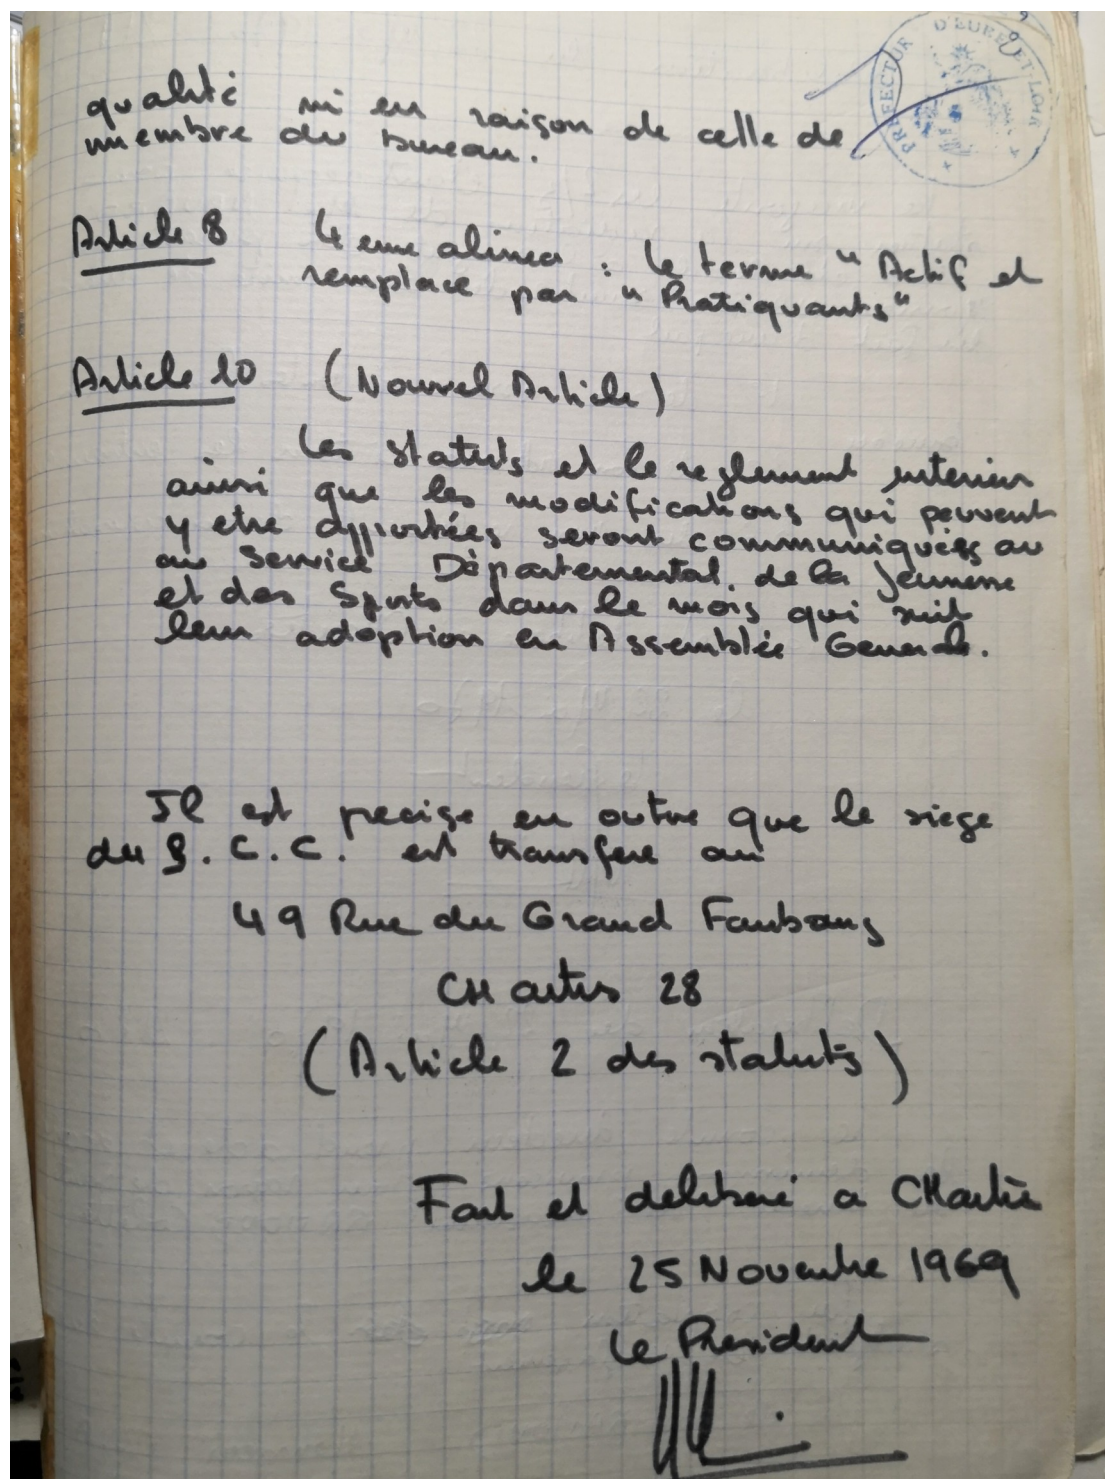 PREFECTURE D'EURE-ET-LOIR
qualité ni en raison de celle de
membre du bureau.
Article 8 4 eme alinea : le terme " Actif et
remplace par " Pratiquants "
Article 10 (Nouvel Article)
Les statuts et le reglement interieur
ainsi que les modifications qui peuvent
y etre apportées seront communiquées au
au Service Départemental de la Jeunesse
et des Sports dans le mois qui suit
leur adoption en Assemblée Generale.
Il est precise en outre que le siege
du S. C. C. est transfere au
49 Rue du Grand Faubourg
CHartres 28
(Article 2 des statuts)
Fait et deliberé a CHartres
le 25 Novembre 1969
Le President